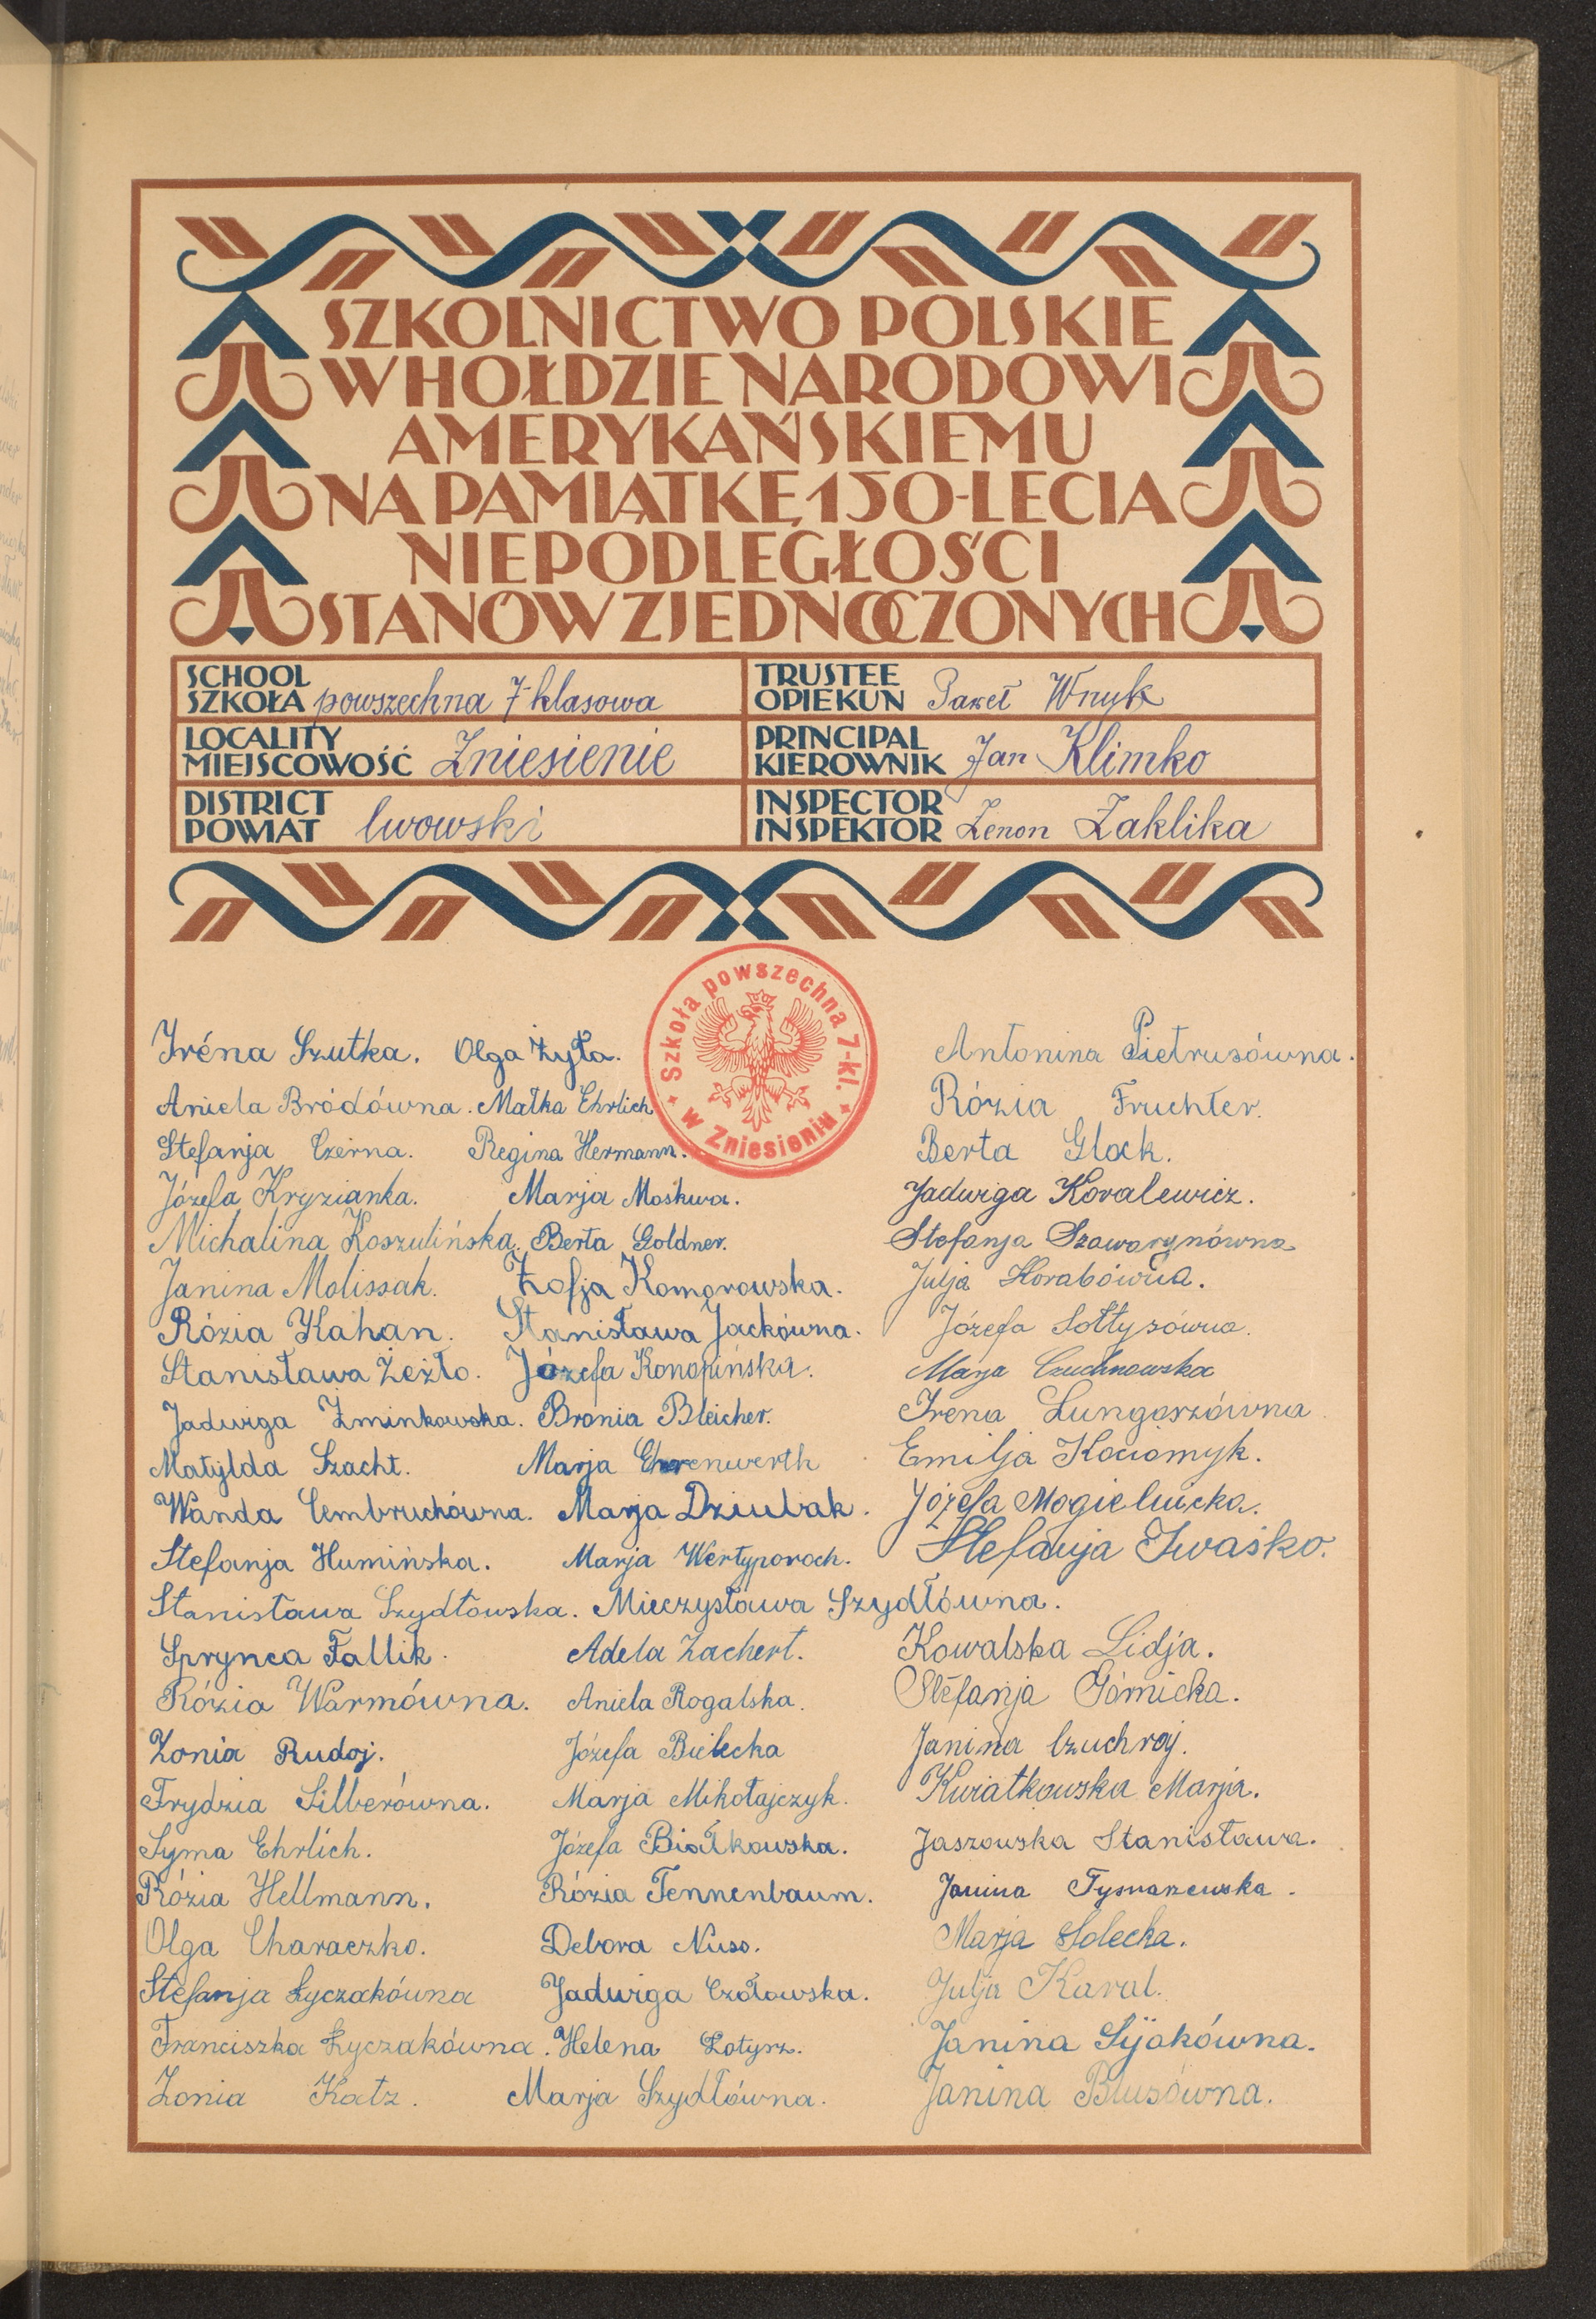 SZKOLNICTWO POLSKIE
W HOŁDZIE NARODOWI
AMERYKAŃSKIEMU
NA PAMIĄTKĘ 150-LECIA
NIEPODLEGŁOŚCI
STANÓW ZJEDNOCZONYCH
SCHOOL
SZKOŁA powszechna 7-klasowa
TRUSTEE
OPIEKUN Paweł Wnyk
LOCALITY
MIEJSCOWOŚĆ Zniesienie
PRINCIPAL
KIEROWNIK Jan Klimko
DISTRICT
POWIAT lwowski
INSPECTOR
INSPEKTOR Zenon Żaklika
Szkoła powszechna 7-kl.
w Zniesieniu
Iréna Szutka. Olga Żyła. Antonina Pietrusówna.
Aniela Bródówna. Małka Ehrlich Rózia Fruchter.
Stefanja Czerna. Regina Hermann. Berta Glock.
Józefa Kryzianka. Marja Mośkwa. Jadwiga Kovalewicz.
Michalina Koszulińska. Berta Goldner. Stefanja Szawarynówna
Janina Molissak. Zofja Komorowska. Julja Korabówna.
Rózia Kahan. Stanisława Jackówna. Józefa Sołtysówna.
Stanisława Żeżło. Józefa Konopińska. Marja Czuchnowska
Jadwiga Żminkowska. Bronia Bleicher. Irena Lungarzówna
Matylda Szacht. Marja Ehrenwerth Emilja Kociomyk.
Wanda Cembruchówna. Marja Dziubak. Józefa Mogielnicka.
Stefanja Humińska. Marja Wertyporoch. Stefanja Iwaśko.
Stanisława Szydłowska. Mieczysława Szydłówna.
Sprynca Fallik. Adela Zachert. Kowalska Lidja.
Rózia Warmówna. Aniela Rogalska. Stefanja Górnicka.
Zonia Rudoj. Józefa Bielecka Janina Czuchraj.
Frydzia Silberówna. Marja Mikołajczyk. Kwiatkowska Marja.
Syma Ehrlich. Józefa Białkowska. Jaszowska Stanisława.
Rózia Hellmann. Rózia Tennenbaum. Janina
Olga Characzko. Debora Nuss. Marja Solecka.
Stefanja Łyczakówna Jadwiga Czołowska. Julja Karal.
Franciszka Łyczakówna. Helena Łotysz. Janina Sijakówna.
Zonia Katz. Marja Szydłówna. Janina Blusówna.